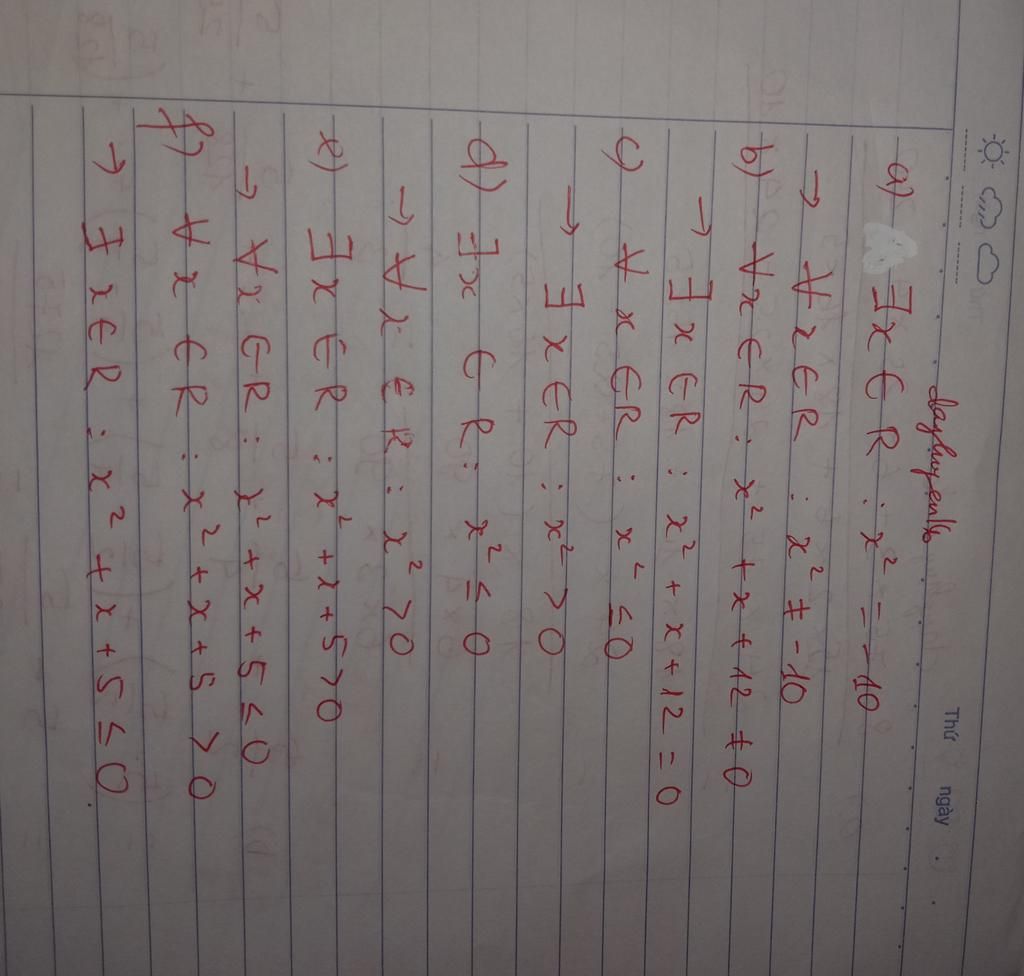 Thứ ngày
dayhuyenllo
a) ∃x ∈ R : x² = -10
→ ∀x ∈ R : x² ≠ -10
b) ∀x ∈ R : x² + x + 12 ≠ 0
→ ∃x ∈ R : x² + x + 12 = 0
c) ∀x ∈ R : x² ≤ 0
→ ∃x ∈ R : x² > 0
d) ∃x ∈ R : x² ≤ 0
→ ∀x ∈ R : x² > 0
e) ∃x ∈ R : x² + x + 5 > 0
→ ∀x ∈ R : x² + x + 5 ≤ 0
f) ∀x ∈ R : x² + x + 5 > 0
→ ∃x ∈ R : x² + x + 5 ≤ 0